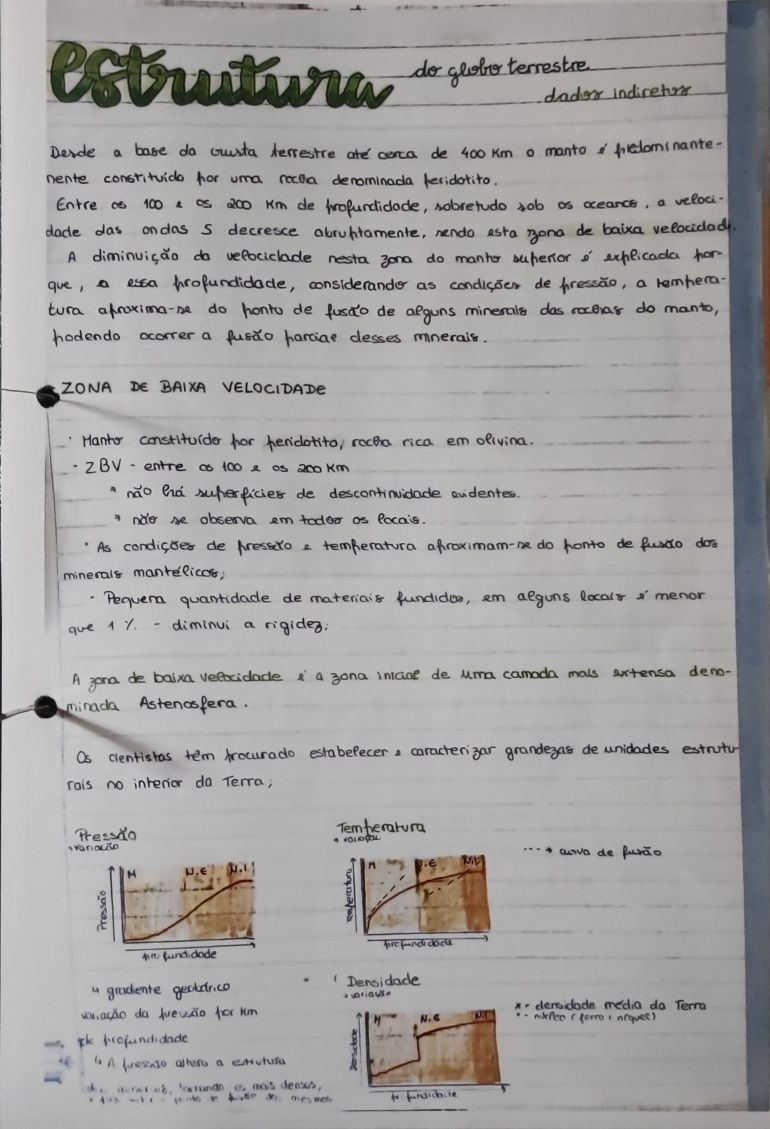 estrutura do globo terrestre
dados indiretos
Desde a base da crusta terrestre até cerca de 400 Km o manto é predominante-
nente constituído por uma rocha denominada peridotito.
Entre os 100 e os 200 Km de profundidade, sobretudo sob os oceanos, a veloci-
dade das ondas S decresce abruptamente, sendo esta zona de baixa velocidade.
A diminuição da velocidade nesta zona do manto superior é explicada por-
que, a essa profundidade, considerando as condições de pressão, a tempera-
tura aproxima-se do ponto de fusão de alguns minerais das rochas do manto,
podendo ocorrer a fusão parcial desses minerais.
ZONA DE BAIXA VELOCIDADE
· Manto constituído por peridotito, rocha rica em olivina.
· ZBV - entre os 100 e os 200 Km
* não há superfícies de descontinuidade evidentes.
* não se observa em todos os locais.
· As condições de pressão e temperatura aproximam-se do ponto de fusão dos
minerais mantélicos;
· Pequena quantidade de materiais fundidos, em alguns locais é menor
que 1 % - diminui a rigidez;
A zona de baixa velocidade é a zona inicial de uma camada mais extensa deno-
minada Astenosfera.
Os cientistas têm procurado estabelecer e caracterizar grandezas de unidades estrutu-
rais no interior da Terra;
Pressão
variação
Pressão
M N.E N.I
profundidade
↳ gradiente geobárico
variação da pressão por km
de profundidade
↳ A pressão altera a estrutura
dos minerais, tornando os mais densos,
ponto de fusão dos mesmos
Temperatura
variação
Temperatura
M N.E N.I
profundidade
--- → curva de fusão
Densidade
variação
Densidade
M N.E N.I
profundidade
* densidade média da Terra
núcleo (ferro e níquel)